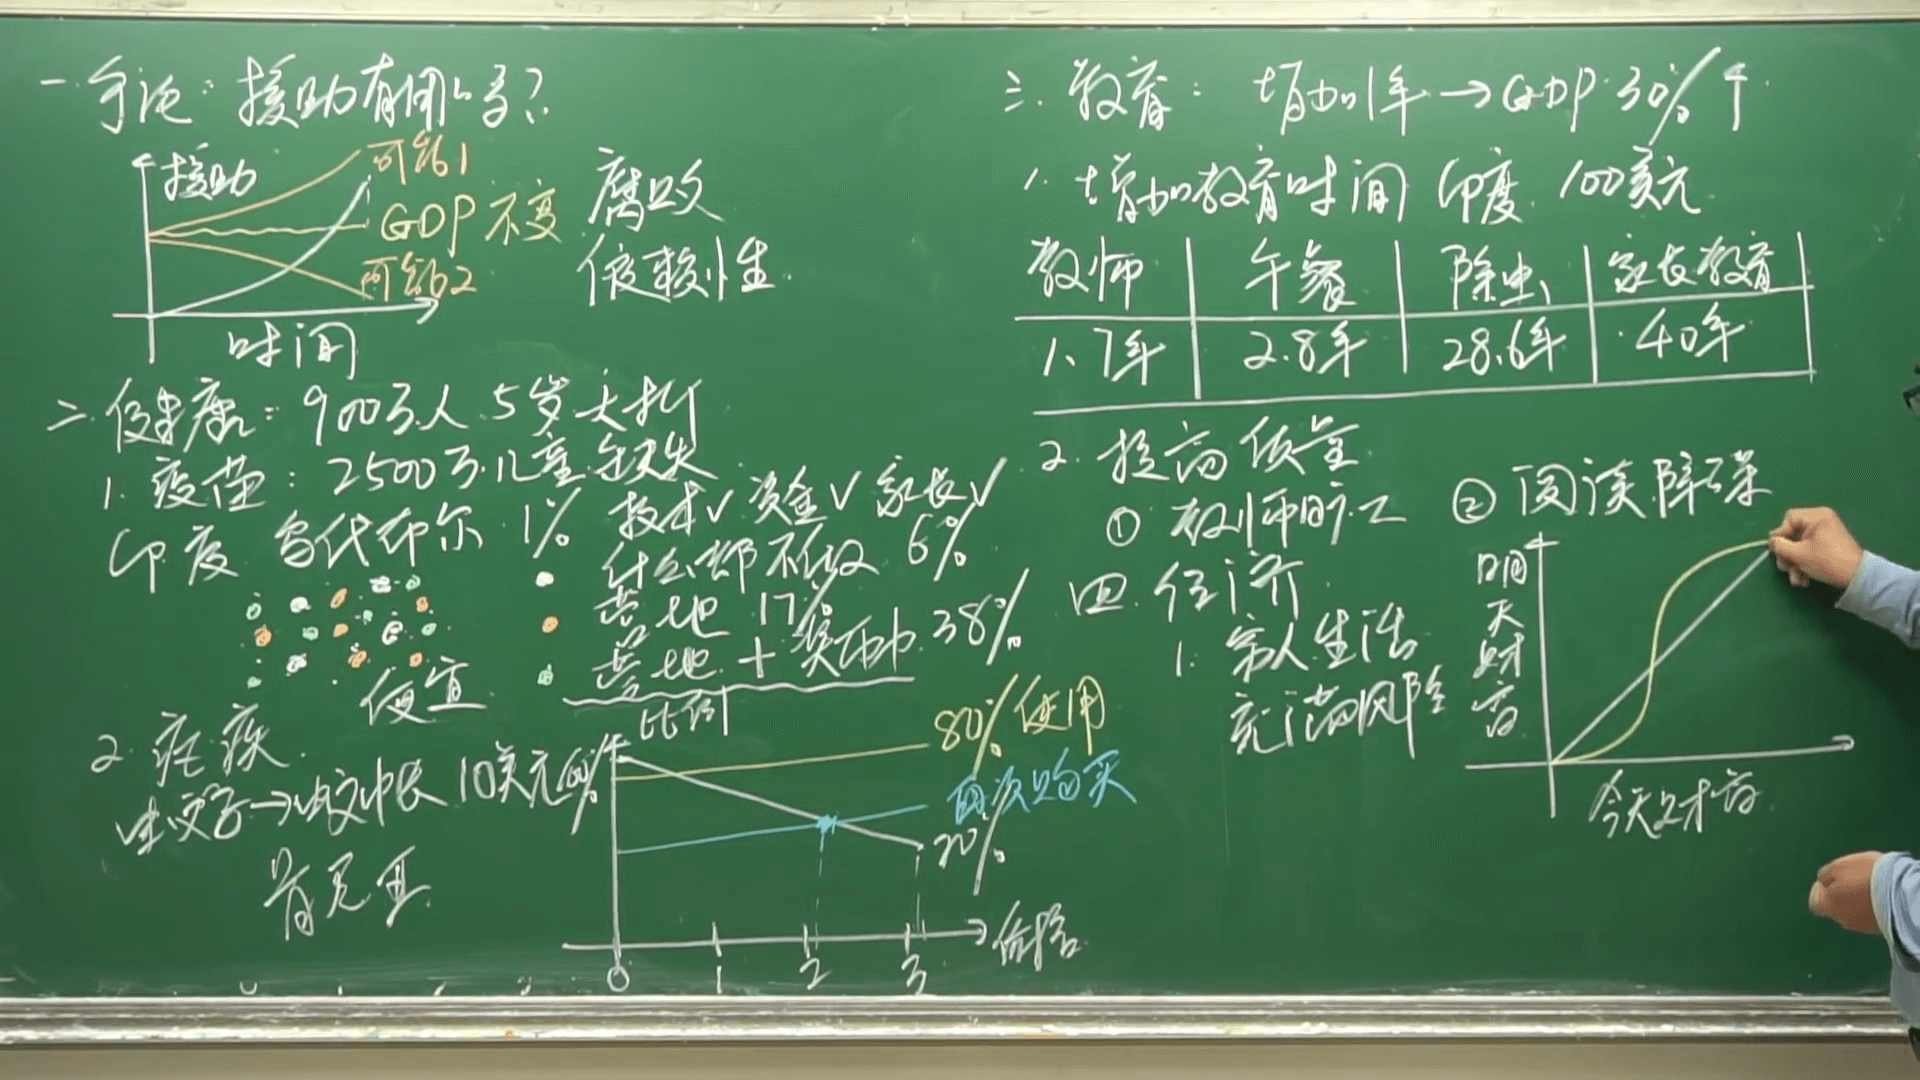 一. 争论: 援助有用吗?
援助
可能1
GDP不变
可能2
时间
腐败
依赖性
二. 健康: 900万人 5岁夭折
1. 疫苗: 2500万儿童缺失
印度 乌代布尔 1%
技术√ 资金√ 家长√
什么都不做 6%
营地 17%
营地 + 奖励 38%
便宜
2. 疟疾
蚊子→蚊帐 10美元
肯尼亚
比例
80% 使用
再次购买
20%
0 1 2 3
价格
三. 教育: 增加1年→GDP 30%↑
1. 增加教育时间 印度 100美元
教师 午餐 除虫 家长教育
1.7年 2.8年 28.6年 40年
2. 提高质量
① 教师旷工
② 阅读障碍
四. 经济
1. 穷人生活
充满风险
明天财富
今天财富